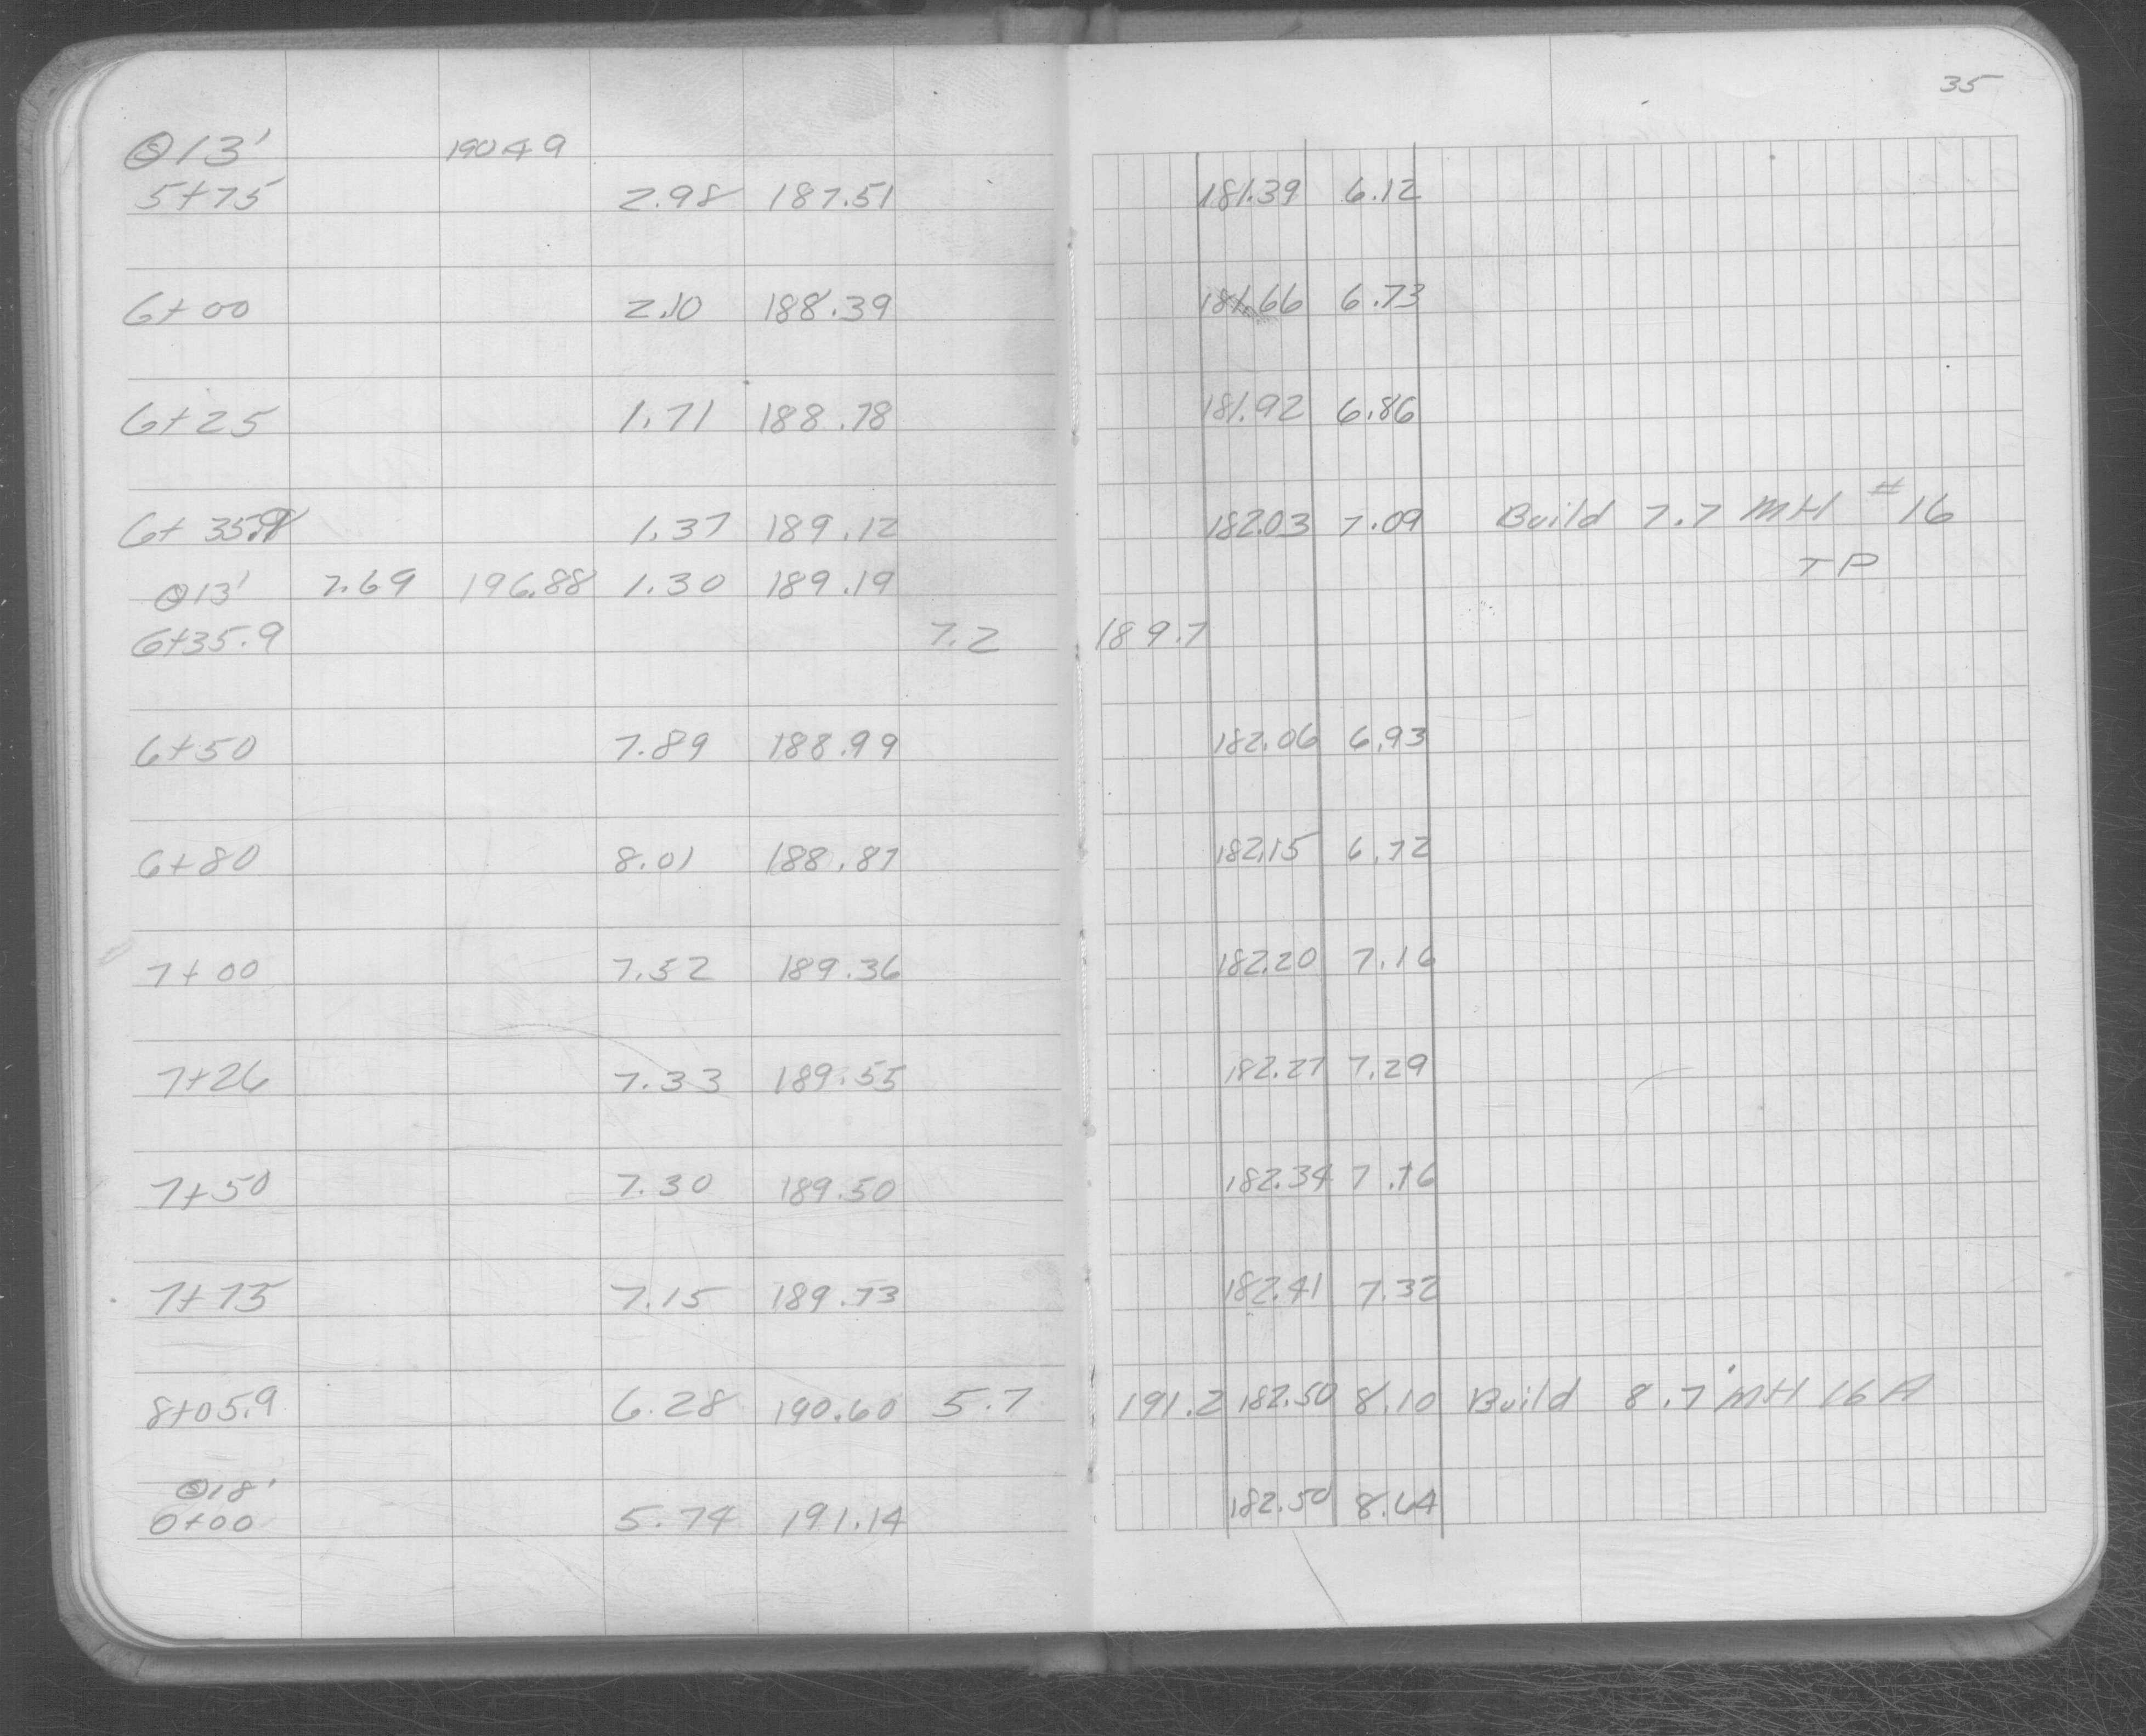 35
Ⓢ13' 190.49
5+75 2.98 187.51 181.39 6.12
6+00 2.10 188.39 181.66 6.73
6+25 1.71 188.78 181.92 6.86
6+35.9 1.37 189.12 182.03 7.09 Build 7.7 MH #16
Ⓢ13' 7.69 196.88 1.30 189.19 TP
6+35.9 7.2 189.7
6+50 7.89 188.99 182.06 6.93
6+80 8.01 188.87 182.15 6.72
7+00 7.52 189.36 182.20 7.16
7+26 7.33 189.55 182.27 7.29
7+50 7.30 189.50 182.34 7.16
7+75 7.15 189.73 182.41 7.32
8+05.9 6.28 190.60 5.7 191.2 182.50 8.10 Build 8.7' MH 16A
Ⓢ18'
0+00 5.74 191.14 182.50 8.64